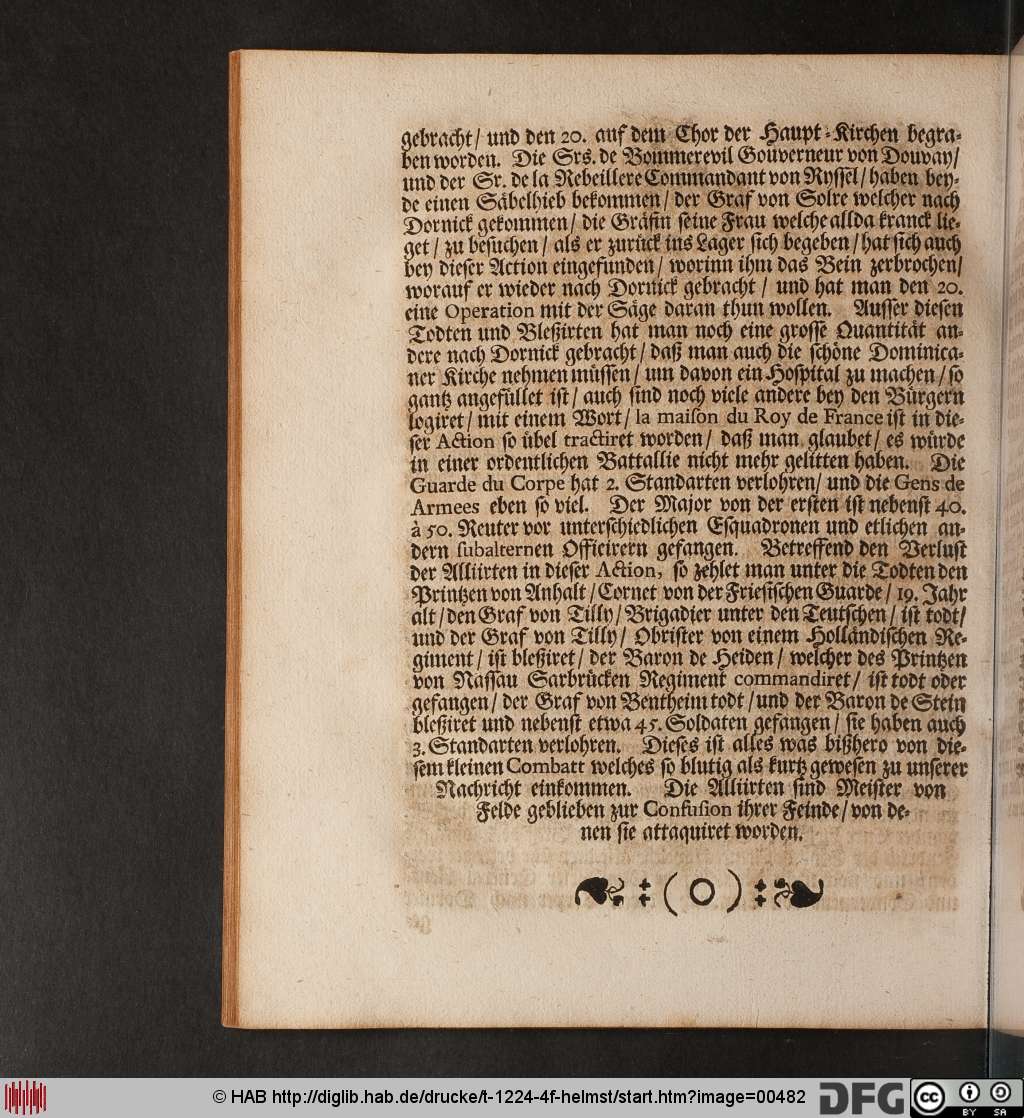 gebracht/ und den 20. auf dem Chor der Haupt-Kirchen begra-
ben worden. Die Srs. de Bommerevil Gouverneur von Douvay/
und der Sr. de la Rebeillere Commandant von Ryssel/ haben bey-
de einen Säbelhieb bekommen/ der Graf von Solre welcher nach
Dornick gekommen/ die Gräfin seine Frau welche allda kranck lie-
get/ zu besuchen/ als er zurück ins Lager sich begeben/ hat sich auch
bey dieser Action eingefunden/ worinn ihm das Bein zerbrochen/
worauf er wieder nach Dornick gebracht/ und hat man den 20.
eine Operation mit der Säge daran thun wollen. Ausser diesen
Todten und Bleßirten hat man noch eine grosse Quantität an-
dere nach Dornick gebracht/ daß man auch die schöne Dominica-
ner Kirche nehmen müssen/ um davon ein Hospital zu machen/ so
gantz angefüllet ist/ auch sind noch viele andere bey den Bürgern
logiret/ mit einem Wort/ la maison du Roy de France ist in die-
ser Action so übel tractiret worden/ daß man glaubet/ es würde
in einer ordentlichen Battallie nicht mehr gelitten haben. Die
Guarde du Corpe hat 2. Standarten verlohren/ und die Gens de
Armees eben so viel. Der Major von der ersten ist nebenst 40.
à 50. Reuter vor unterschiedlichen Esquadronen und etlichen an-
dern subalternen Officirern gefangen. Betreffend den Verlust
der Alliirten in dieser Action, so zehlet man unter die Todten den
Printzen von Anhalt/ Cornet von der Friesischen Guarde/ 19. Jahr
alt/ den Graf von Tilly/ Brigadier unter den Teutschen/ ist todt/
und der Graf von Tilly/ Obrister von einem Holländischen Re-
giment/ ist bleßiret/ der Baron de Heiden/ welcher des Printzen
von Nassau Sarbrücken Regiment commandiret/ ist todt oder
gefangen/ der Graf von Bentheim todt/ und der Baron de Stein
bleßiret und nebenst etwa 45. Soldaten gefangen/ sie haben auch
3. Standarten verlohren. Dieses ist alles was bißhero von die-
sem kleinen Combatt welches so blutig als kurtz gewesen zu unserer
Nachricht einkommen. Die Alliirten sind Meister von
Felde geblieben zur Confusion ihrer Feinde/ von de-
nen sie attaquiret worden.
© HAB http://diglib.hab.de/drucke/t-1224-4f-helmst/start.htm?image=00482
DFG
cc BY SA